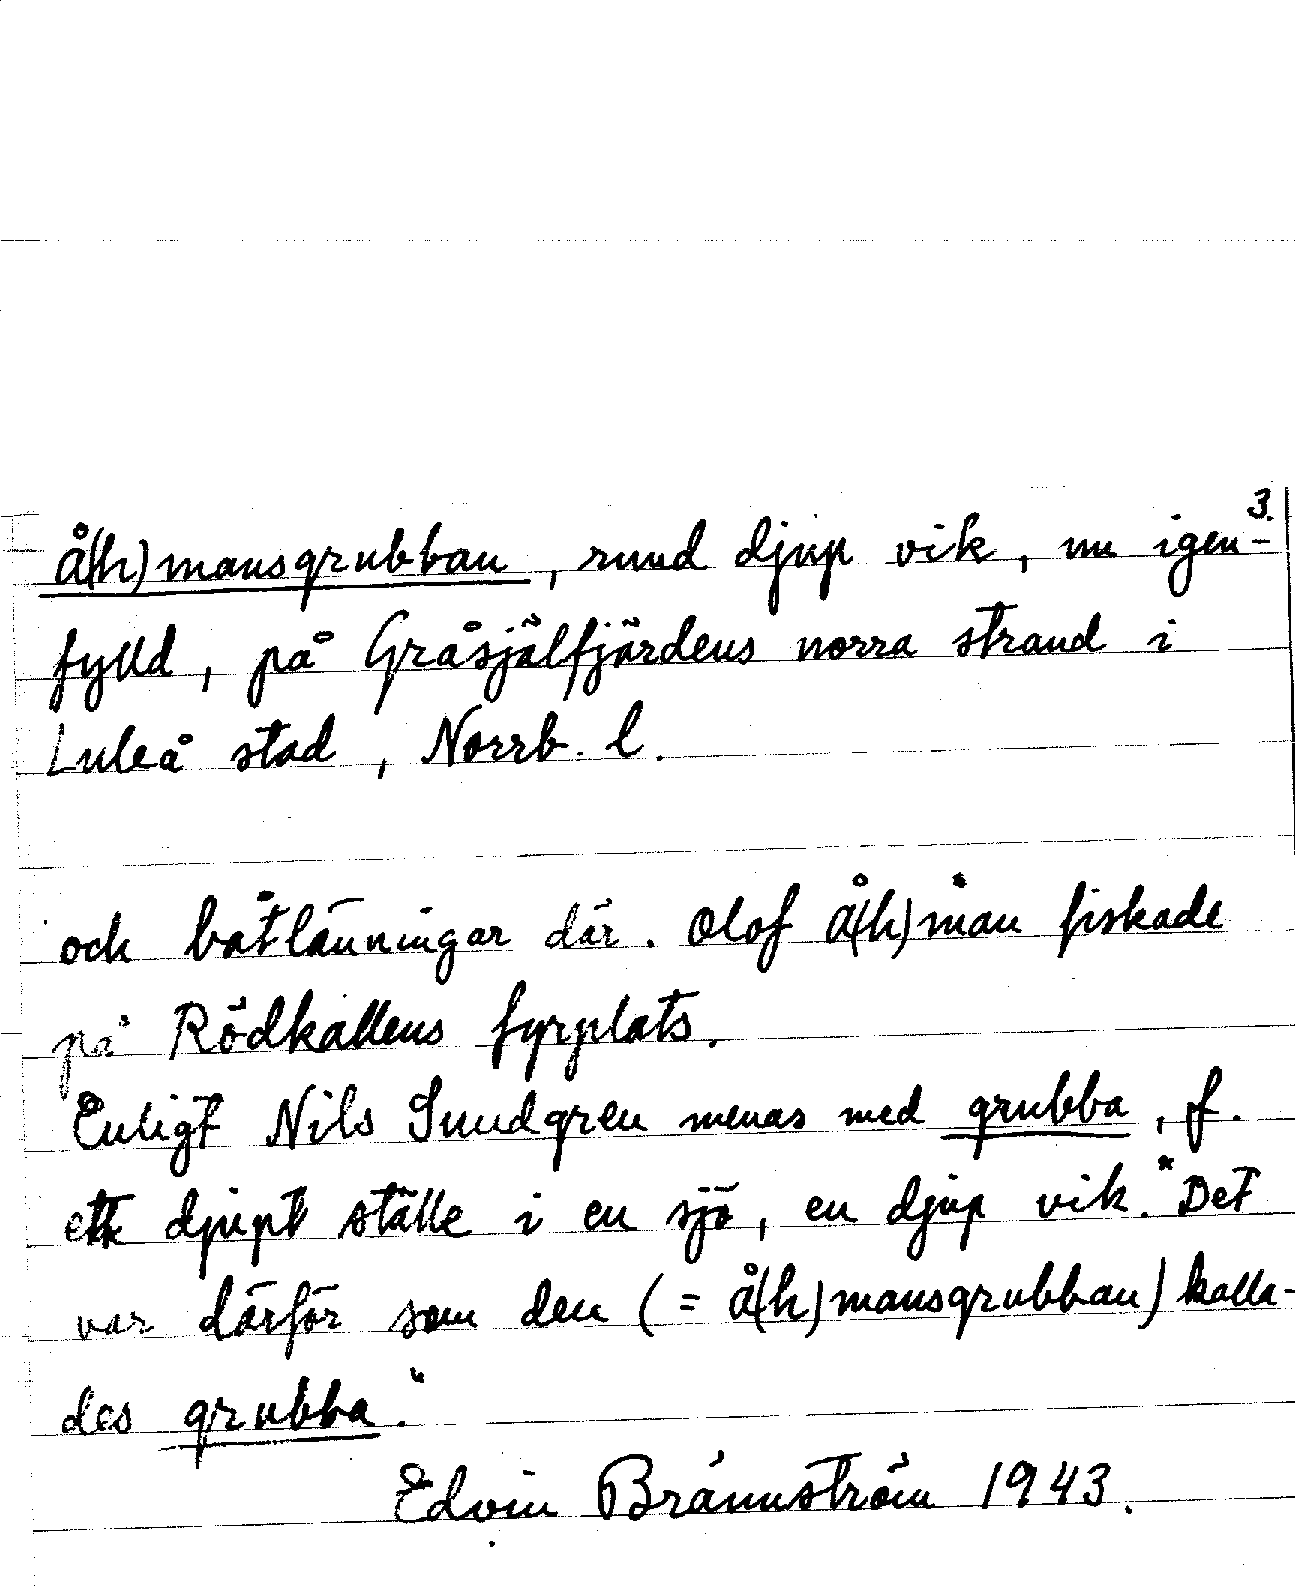 3.
Å(h)mansgrubban, rund djup vik, nu igen-
fylld, på Gråsjälfjärdens norra strand i
Luleå stad, Norrb. l.
och båtlänningar där. Olof Å(h)man fiskade
på Rödkallens fyrplats.
Enligt Nils Sundgren menas med grubba, f.
ett djupt ställe i en sjö, en djup vik. "Det
var därför som den (= Å(h)mansgrubban) kalla-
des grubba."
Edvin Brännström 1943.